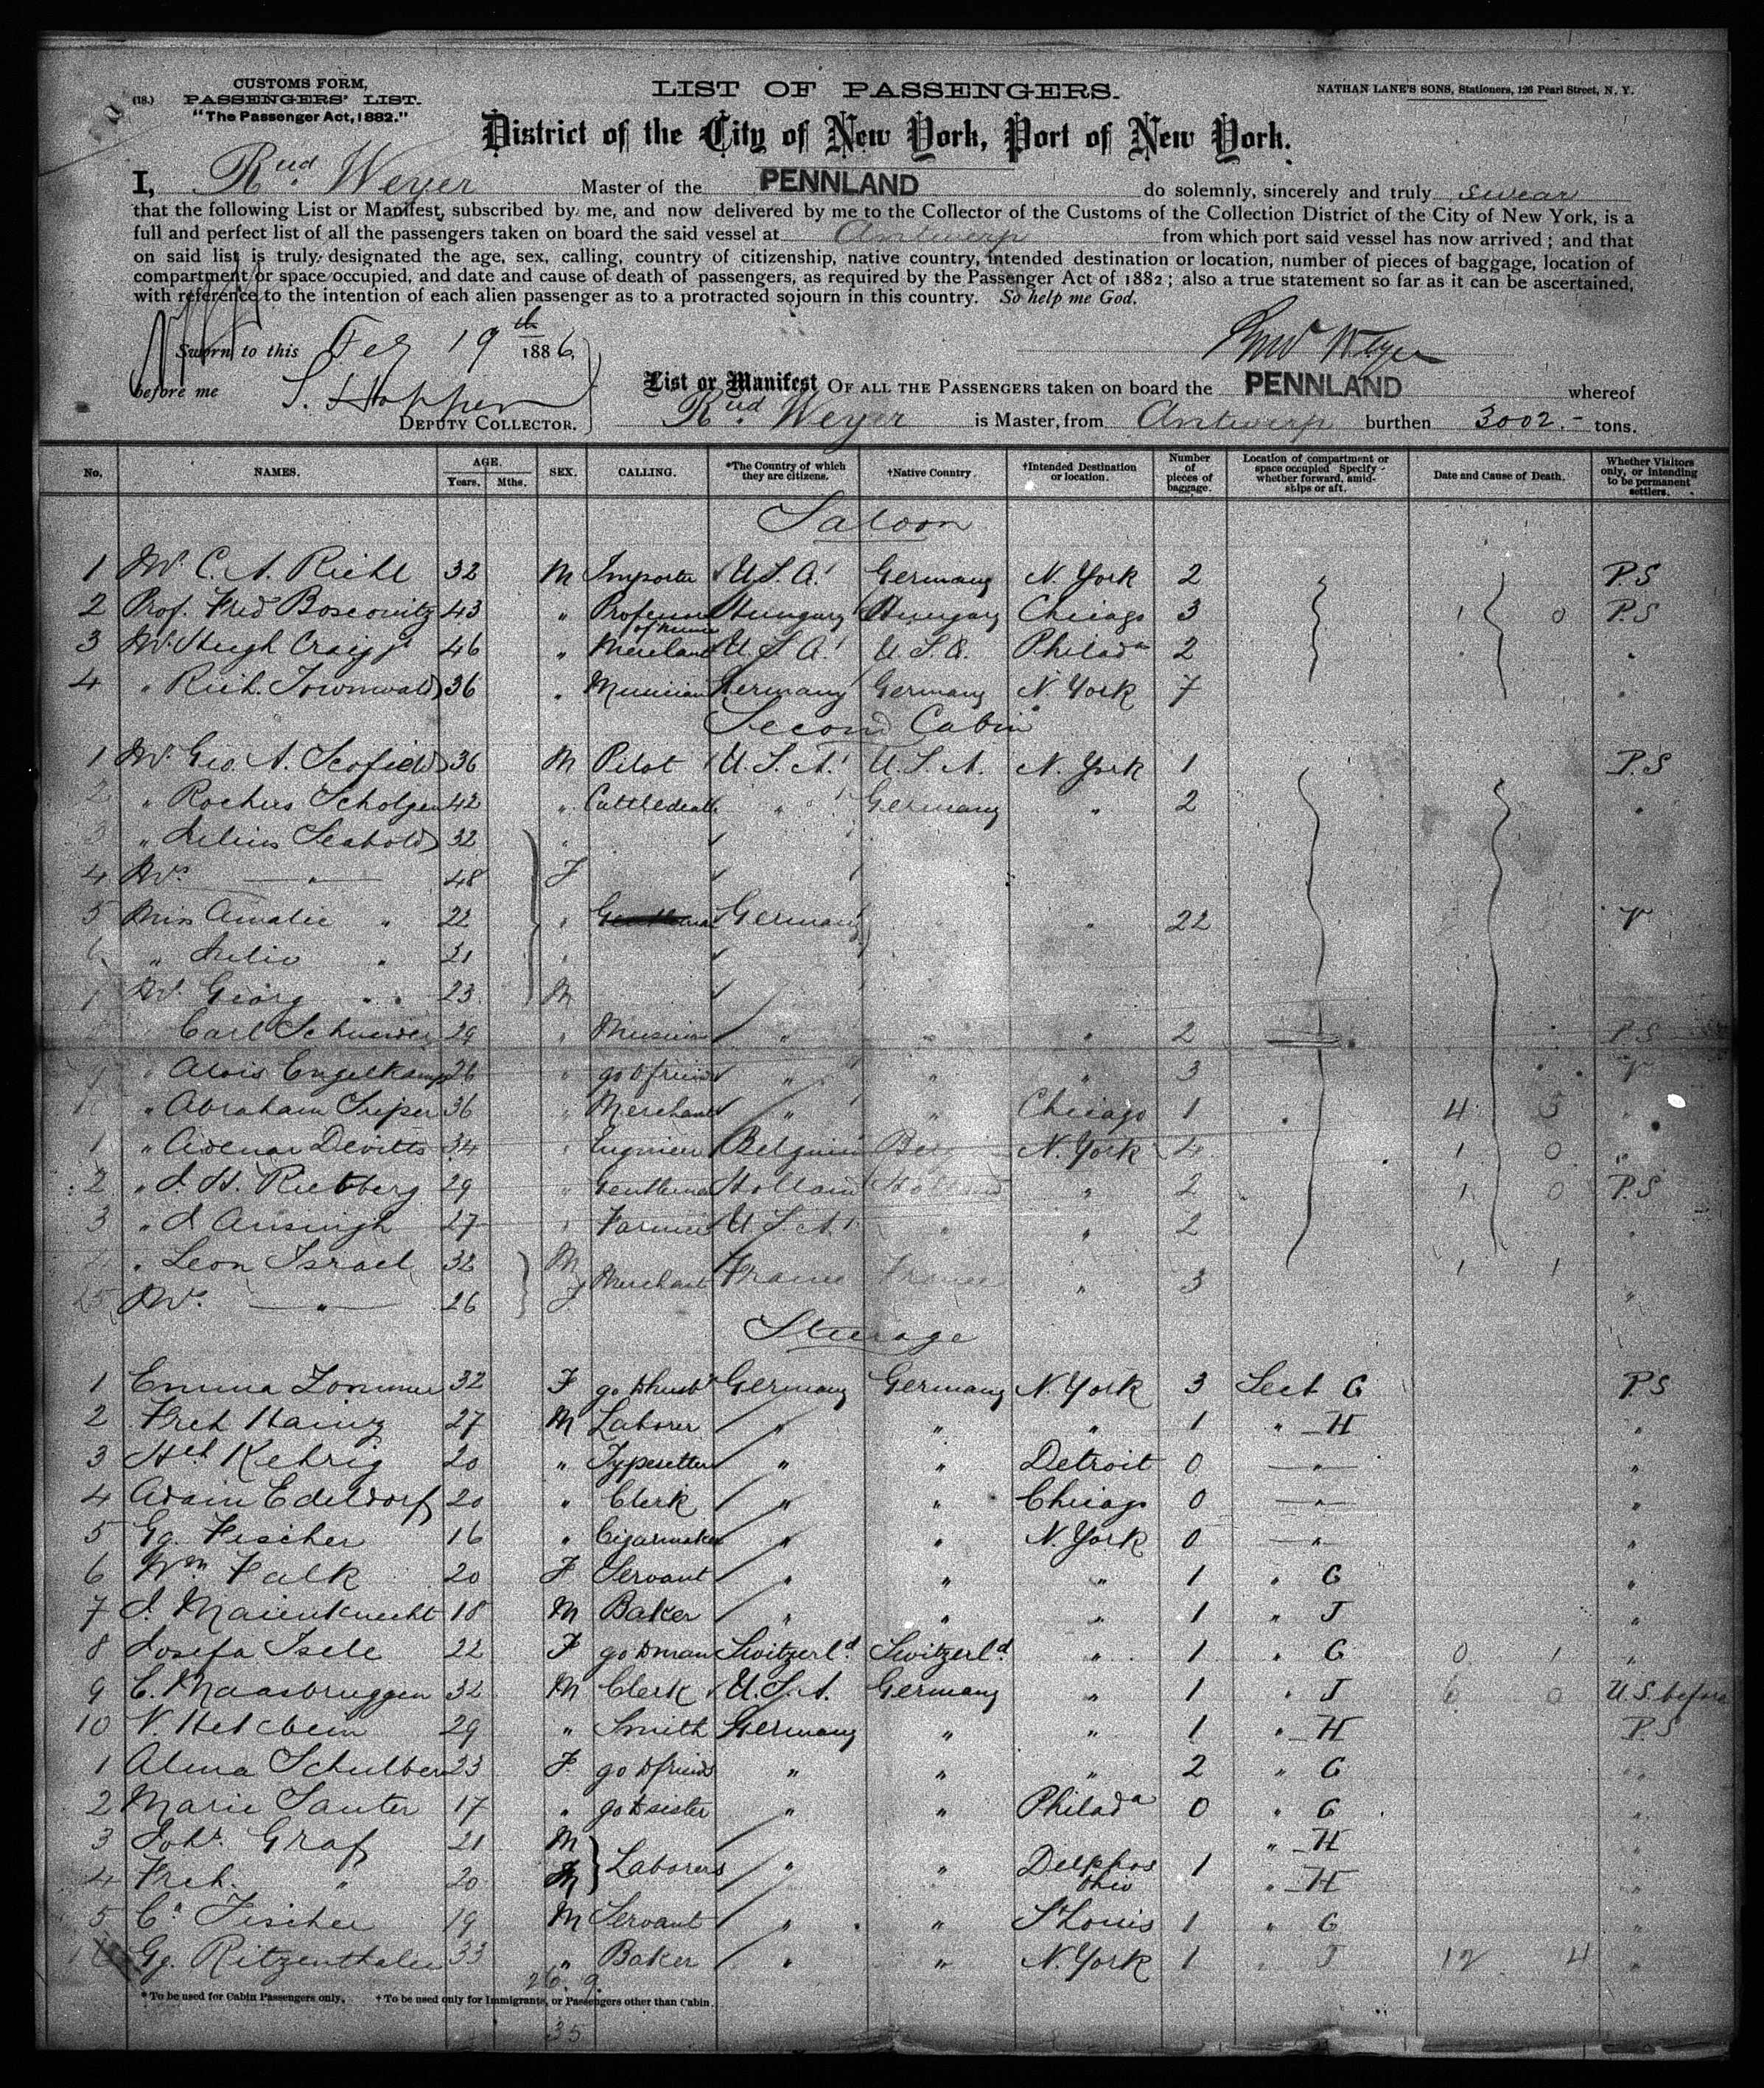 (18.)
CUSTOMS FORM,
PASSENGERS' LIST.
"The Passenger Act, 1882."
LIST OF PASSENGERS.
NATHAN LANE'S SONS, Stationers, 126 Pearl Street, N. Y.
District of the City of New York, Port of New York.
I, Rud. Weyer Master of the PENNLAND do solemnly, sincerely and truly swear
that the following List or Manifest, subscribed by me, and now delivered by me to the Collector of the Customs of the Collection District of the City of New York, is a
full and perfect list of all the passengers taken on board the said vessel at Antwerp from which port said vessel has now arrived; and that
on said list is truly designated the age, sex, calling, country of citizenship, native country, intended destination or location, number of pieces of baggage, location of
compartment or space occupied, and date and cause of death of passengers, as required by the Passenger Act of 1882; also a true statement so far as it can be ascertained,
with reference to the intention of each alien passenger as to a protracted sojourn in this country. So help me God.
Sworn to this 19th 1886,
Rud Weyer
before me S. Hopper
DEPUTY COLLECTOR.
List or Manifest OF ALL THE PASSENGERS taken on board the PENNLAND whereof
Rud. Weyer is Master, from Antwerp burthen 3002.- tons.
No. NAMES. AGE. Years. Mths. SEX. CALLING. *The Country of which they are citizens. †Native Country. †Intended Destination or location. Number of pieces of baggage. Location of compartment or space occupied Specify - whether forward, amidships or aft. Date and Cause of Death. Whether Visitors only, or intending to be permanent settlers.
Saloon
1 Mr. C. A. Riehl 32 M Importer U.S.A. Germany N. York 2 P.S
2 Prof. Fred Boscovitz 43 " Professor of music Hungary Hungary Chicago 3 1 0 P.S
3 Mr. Hugh Craig 46 " Merchant U.S.A. U.S.A. Philada 2 "
4 " Rich. 36 " Musician Germany Germany N. York 7 "
Second Cabin
1 Mr. Geo. A. Scofield 36 M Pilot U.S.A. U.S.A. N. York 1 P.S
2 " Rochus Scholgen 42 " Cattledealer " Germany " 2 "
3 " Julius Seabold 32 "
4 Mrs. " 48 F
5 Miss Amalie " 22 " Germany " " 22 V
6 " Julie " 21 "
Mr. Georg " 23 M
Carl Schneider 29 " Musician " " " 2 P.S
" Alois Engelkamp 26 " go to friends " " " 3 V
" Abraham 36 " Merchant " " Chicago 1 4 5 "
1 " Devitts 34 " Engineer Belgium N. York 4 1 0 "
2 " J. H. Rietberg 29 " Gentleman Holland Holland " 2 1 0 P.S
3 " J. Ansingh 27 " Farmer U.S.A. " " 2 "
" Leon Israel 32 M Merchant France France " 3 1 1
5 Mrs. " 26 F "
Steerage
1 Emma 32 F go to husbd Germany Germany N. York 3 Sect G P.S
2 Fred Hainz 27 M Laborer " " " 1 " H "
3 Hch Kehrig 20 " Typesetter " " Detroit 0 " "
4 Adam Edeldorf 20 " Clerk " " Chicago 0 " "
5 Gg. Fischer 16 " Cigarmaker " " N. York 0 " "
6 Wm Falk 20 F Servant " " " 1 " G "
7 J. Maienknecht 18 M Baker " " " 1 " J "
8 Josefa Isele 22 F go to man Switzerld. Switzerld. " 1 " G 0 1 "
9 C. Maasbruggen 32 M Clerk U.S.A. Germany " 1 " J 6 0 U.S. before
10 V. 29 " Smith Germany " " 1 " H P.S
1 Alma 23 F. go to friends " " " 2 " G "
2 Marie Sauter 17 " go to sister " " Philada 0 " G "
3 Johs. Graf 21 M Laborers " " Delphos Ohio 1 " H "
4 Fred. " 20 M " H "
5 Ca Fischer 19 M Servant " " St Louis 1 " G "
Gg. Ritzenthaler 33 " Baker " " N. York 1 " J 12 4 "
26. 9
* To be used for Cabin Passengers only. † To be used only for Immigrants, or Passengers other than Cabin.
35